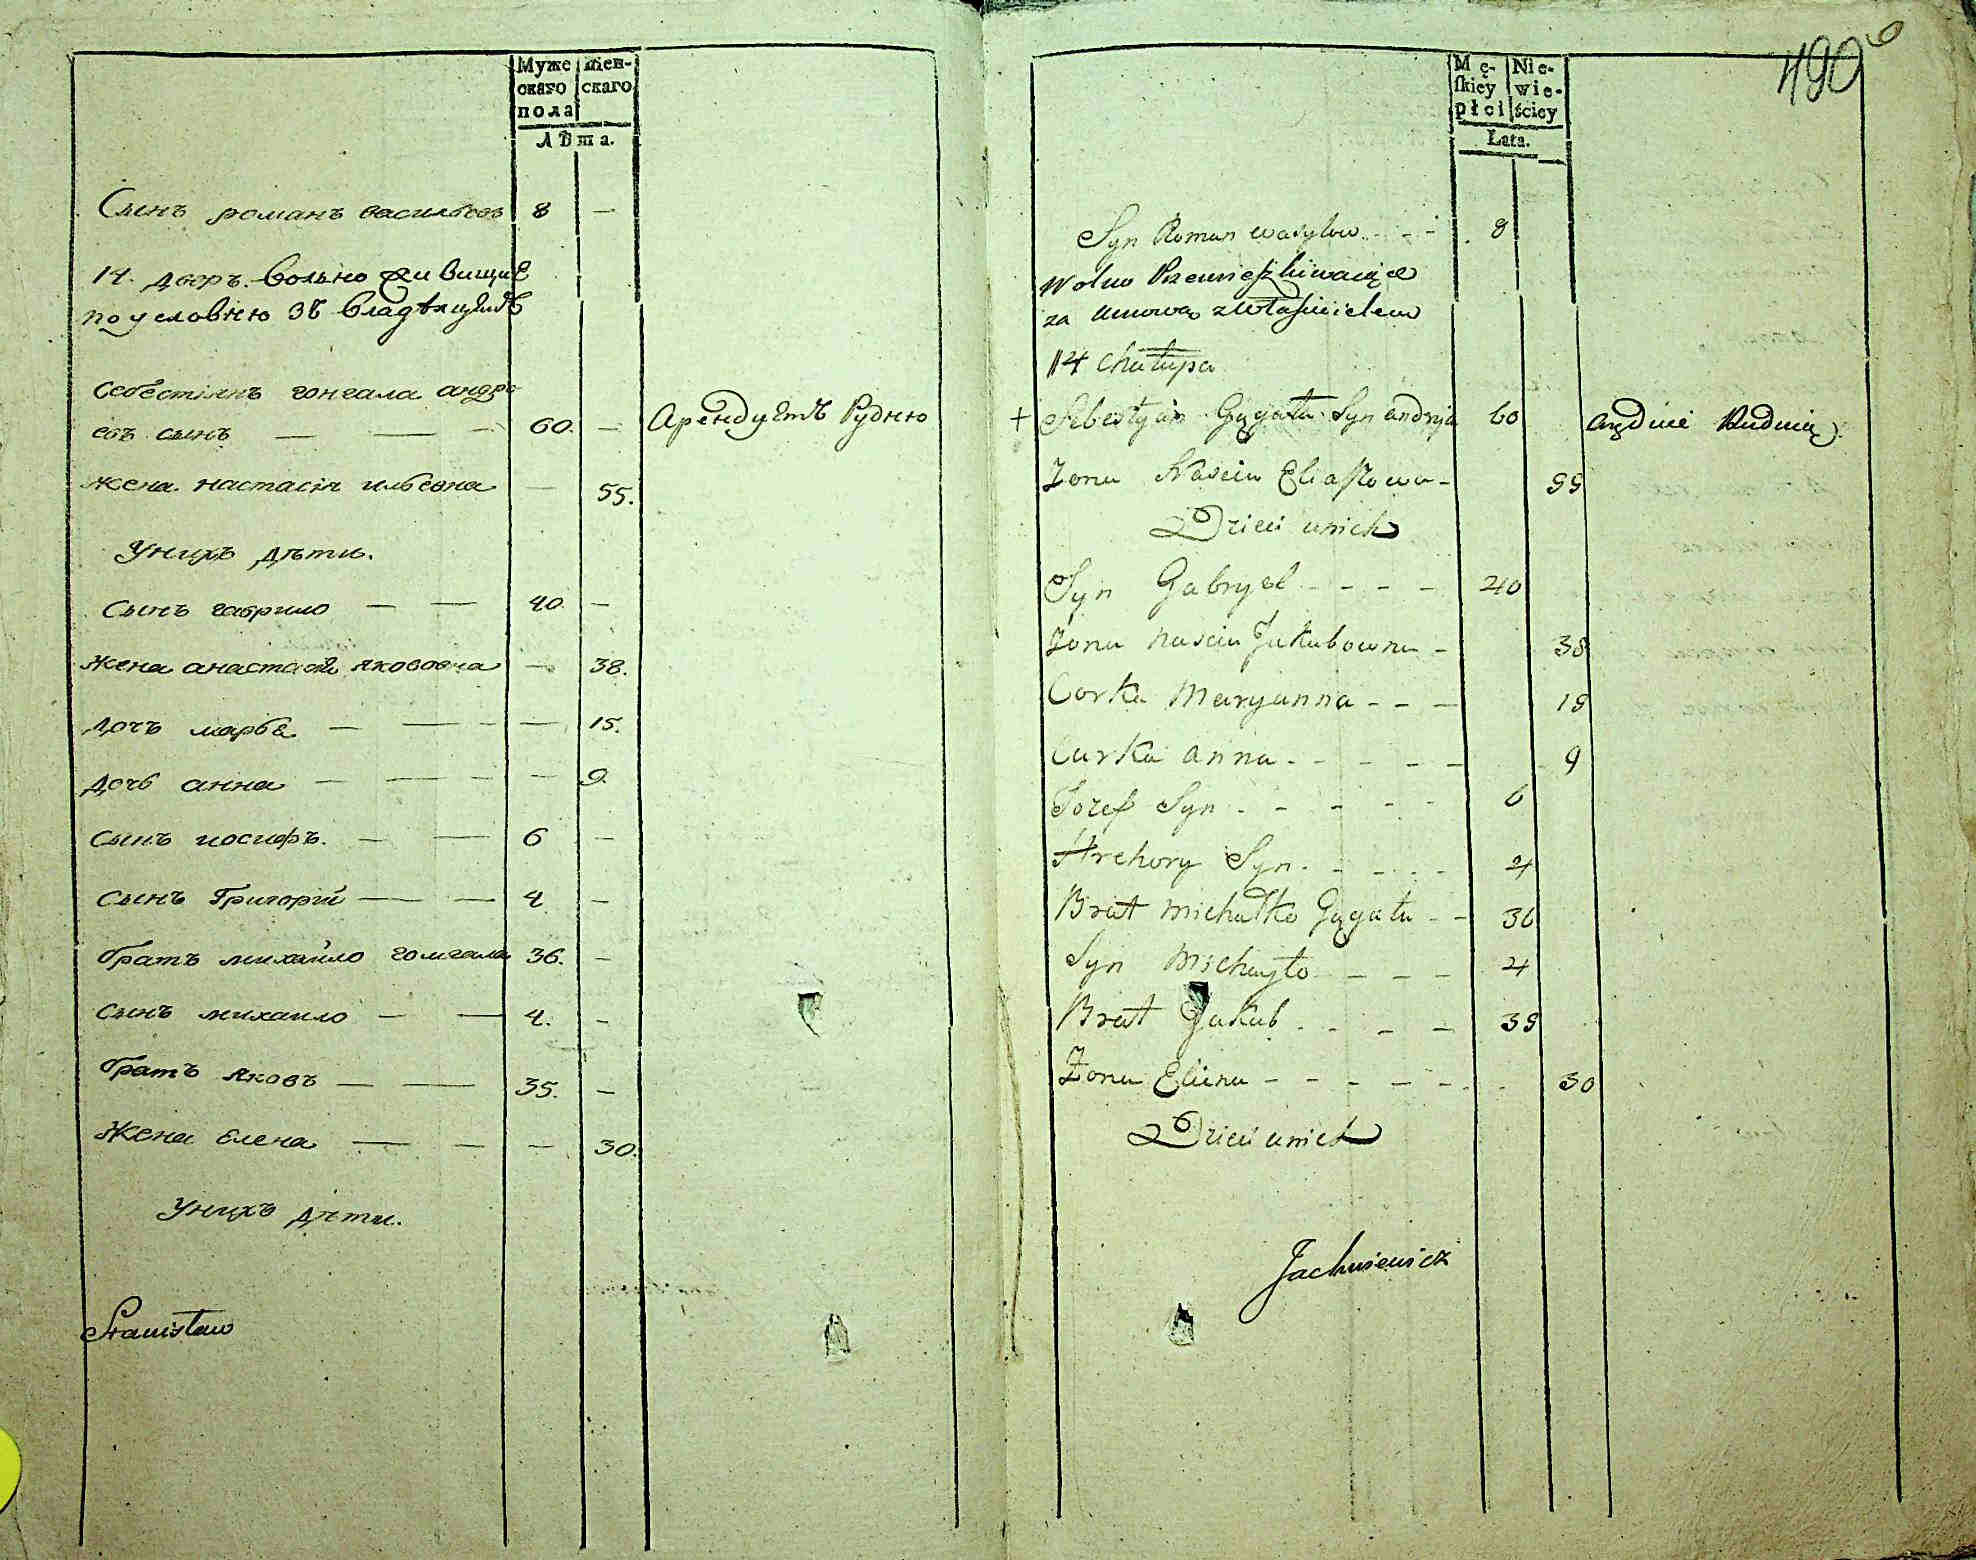 Муже
скаго
пола
жен-
скаго
Лѣта.
Сынъ романъ васильевъ 8 —
14. дворъ. вольно живущие
по условію зъ владѣлцемъ
себестіянъ гонгала андре
евъ сынъ — — — 60. — Арендуетъ Рудню
жена настасія ильевна — 55.
Унихъ дѣти.
сынъ гаврило — — 40. —
жена анастасія яковъвна — 38.
дочъ марья — — — — 15.
дочь анна — — — — 9.
сынъ иосифъ. — — 6 —
сынъ Григорій — — 4. —
братъ михайло гомгала 36. —
сынъ михаило — — 4. —
братъ яковъ — — 35. —
жена елена — — — 30.
Унихъ дѣти.
Stanisław
490
6
Mę-
ſkiey
płci
Nie-
wie-
ściey
Lata.
Syn Roman wasylow - - - 8
Wolno Przemieszkiwaiące
za umową zwłaścicielem
14 Chałupa
+ Sebestyan Gągała Syn andryia 60 Aręduie Rudnią
Zona Nascia Eliaszowa - 55
Dzieci unich
Syn Gabryel - - - - 40
Zona nascia Jakubowna - 38
Corka Maryanna - - - 15
Curka anna - - - - - 9
Jozef Syn - - - - - 6
Hrehory Syn - - - - - 4
Brat michałko Gągała - - 36
Syn Michayło - - - 4
Brat Jakub - - - - 35
Zona Eliena - - - - - - - 30
Dzieci unich
Jachniewicz